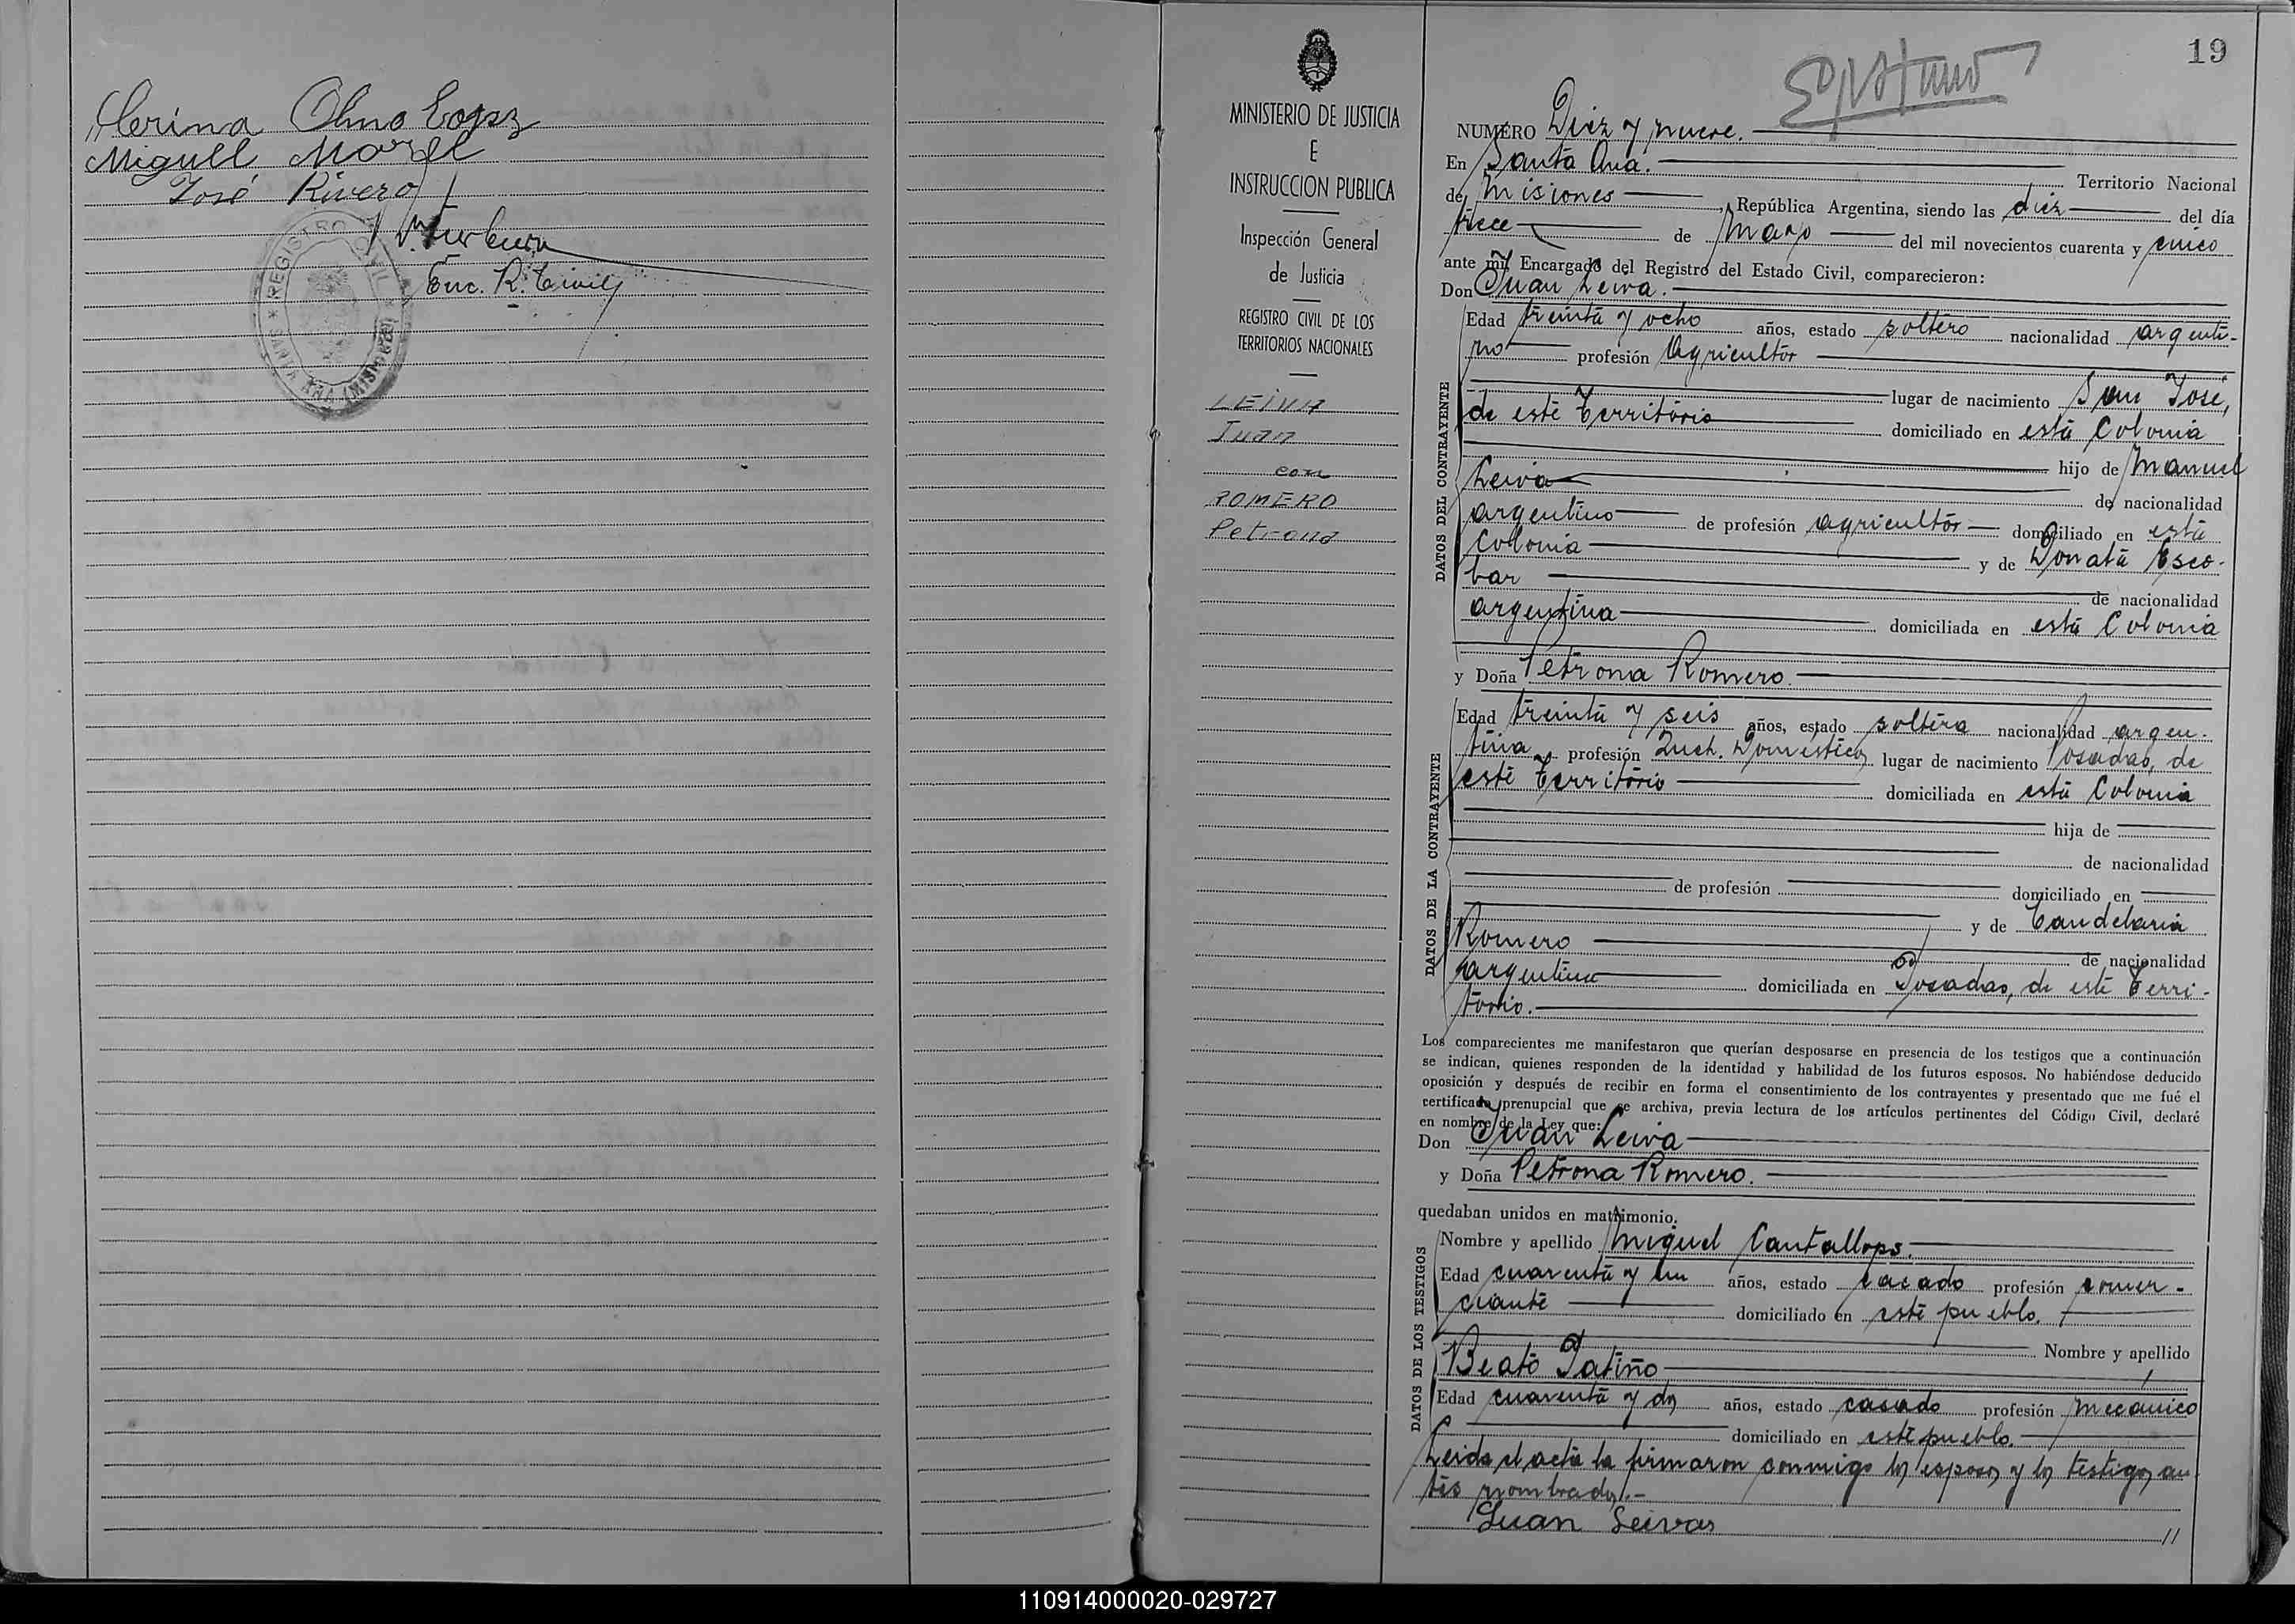 Merina Olmo Lopez
Miguel Morel
José Rivero
Enc. R. Civil
REGISTRO CIVIL * SANTA ANA (MISIONES) *
19
MINISTERIO DE JUSTICIA
E
INSTRUCCION PUBLICA
Inspección General
de Justicia
REGISTRO CIVIL DE LOS
TERRITORIOS NACIONALES
LEIVA
Juan
con
ROMERO
Petrona
NUMERO Diez y nueve.
En Santa Ana. Territorio Nacional
de Misiones, República Argentina, siendo las diez del día
trece de Mayo del mil novecientos cuarenta y cinco
ante mí, Encargado del Registro del Estado Civil, comparecieron:
Don Juan Leiva.
DATOS DEL CONTRAYENTE
Edad treinta y ocho años, estado soltero nacionalidad argenti-
no profesión Agricultor
lugar de nacimiento San José,
de este Territorio domiciliado en esta Colonia
hijo de Manuel
Leiva de nacionalidad
argentino de profesión agricultor domiciliado en esta
Colonia y de Donata Esco-
bar de nacionalidad
argentina domiciliada en esta Colonia
y Doña Petrona Romero.
DATOS DE LA CONTRAYENTE
Edad treinta y seis años, estado soltera nacionalidad argen-
tina profesión Queh. Domésticos lugar de nacimiento Posadas, de
este Territorio domiciliada en esta Colonia
hija de
de nacionalidad
de profesión domiciliado en
y de Candelaria
Romero de nacionalidad
argentina domiciliada en Posadas, de este Terri-
torio.
Los comparecientes me manifestaron que querían desposarse en presencia de los testigos que a continuación
se indican, quienes responden de la identidad y habilidad de los futuros esposos. No habiéndose deducido
oposición y después de recibir en forma el consentimiento de los contrayentes y presentado que me fué el
certificado prenupcial que se archiva, previa lectura de los artículos pertinentes del Código Civil, declaré
en nombre de la Ley que:
Don Juan Leiva
y Doña Petrona Romero.
quedaban unidos en matrimonio.
DATOS DE LOS TESTIGOS
Nombre y apellido Miguel Cantallops.
Edad cuarenta y un años, estado casado profesión comer-
ciante domiciliado en este pueblo.
Nombre y apellido
Beato Patiño
Edad cuarenta y dos años, estado casado profesión mecánico
domiciliado en este pueblo.
Leida el acta la firmaron conmigo los esposos y los testigos an-
tes nombrados.-
Juan Leivas
//
110914000020-029727